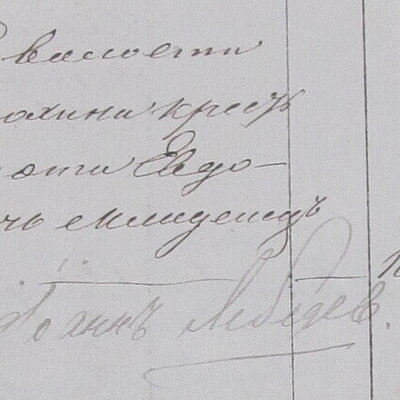 волости
охина крест
ости Евдо-
чь младенецъ
Іоаннъ Лебедев.